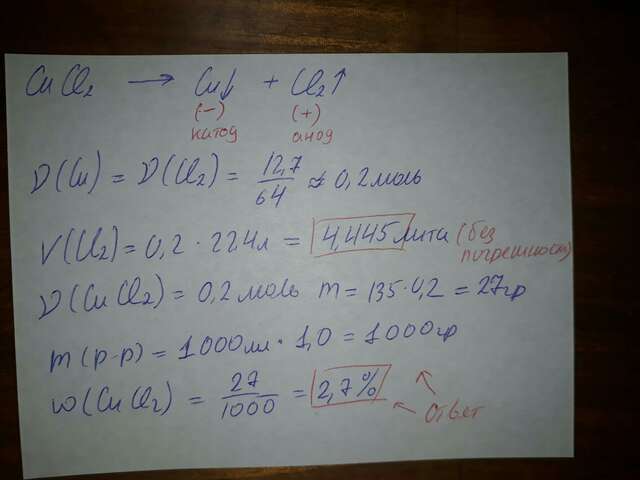 CuCl2 → Cu↓ + Cl2↑
(-) (+)
катод анод
ν(Cu) = ν(Cl2) = 12,7/64 ≈ 0,2 моль
V(Cl2) = 0,2 · 22,4л = 4,445 лита (без погрешност)
ν(CuCl2) = 0,2 моль m = 135·0,2 = 27гр
m(р-р) = 1000мл · 1,0 = 1000гр
ω(CuCl2) = 27/1000 = 2,7% ответ